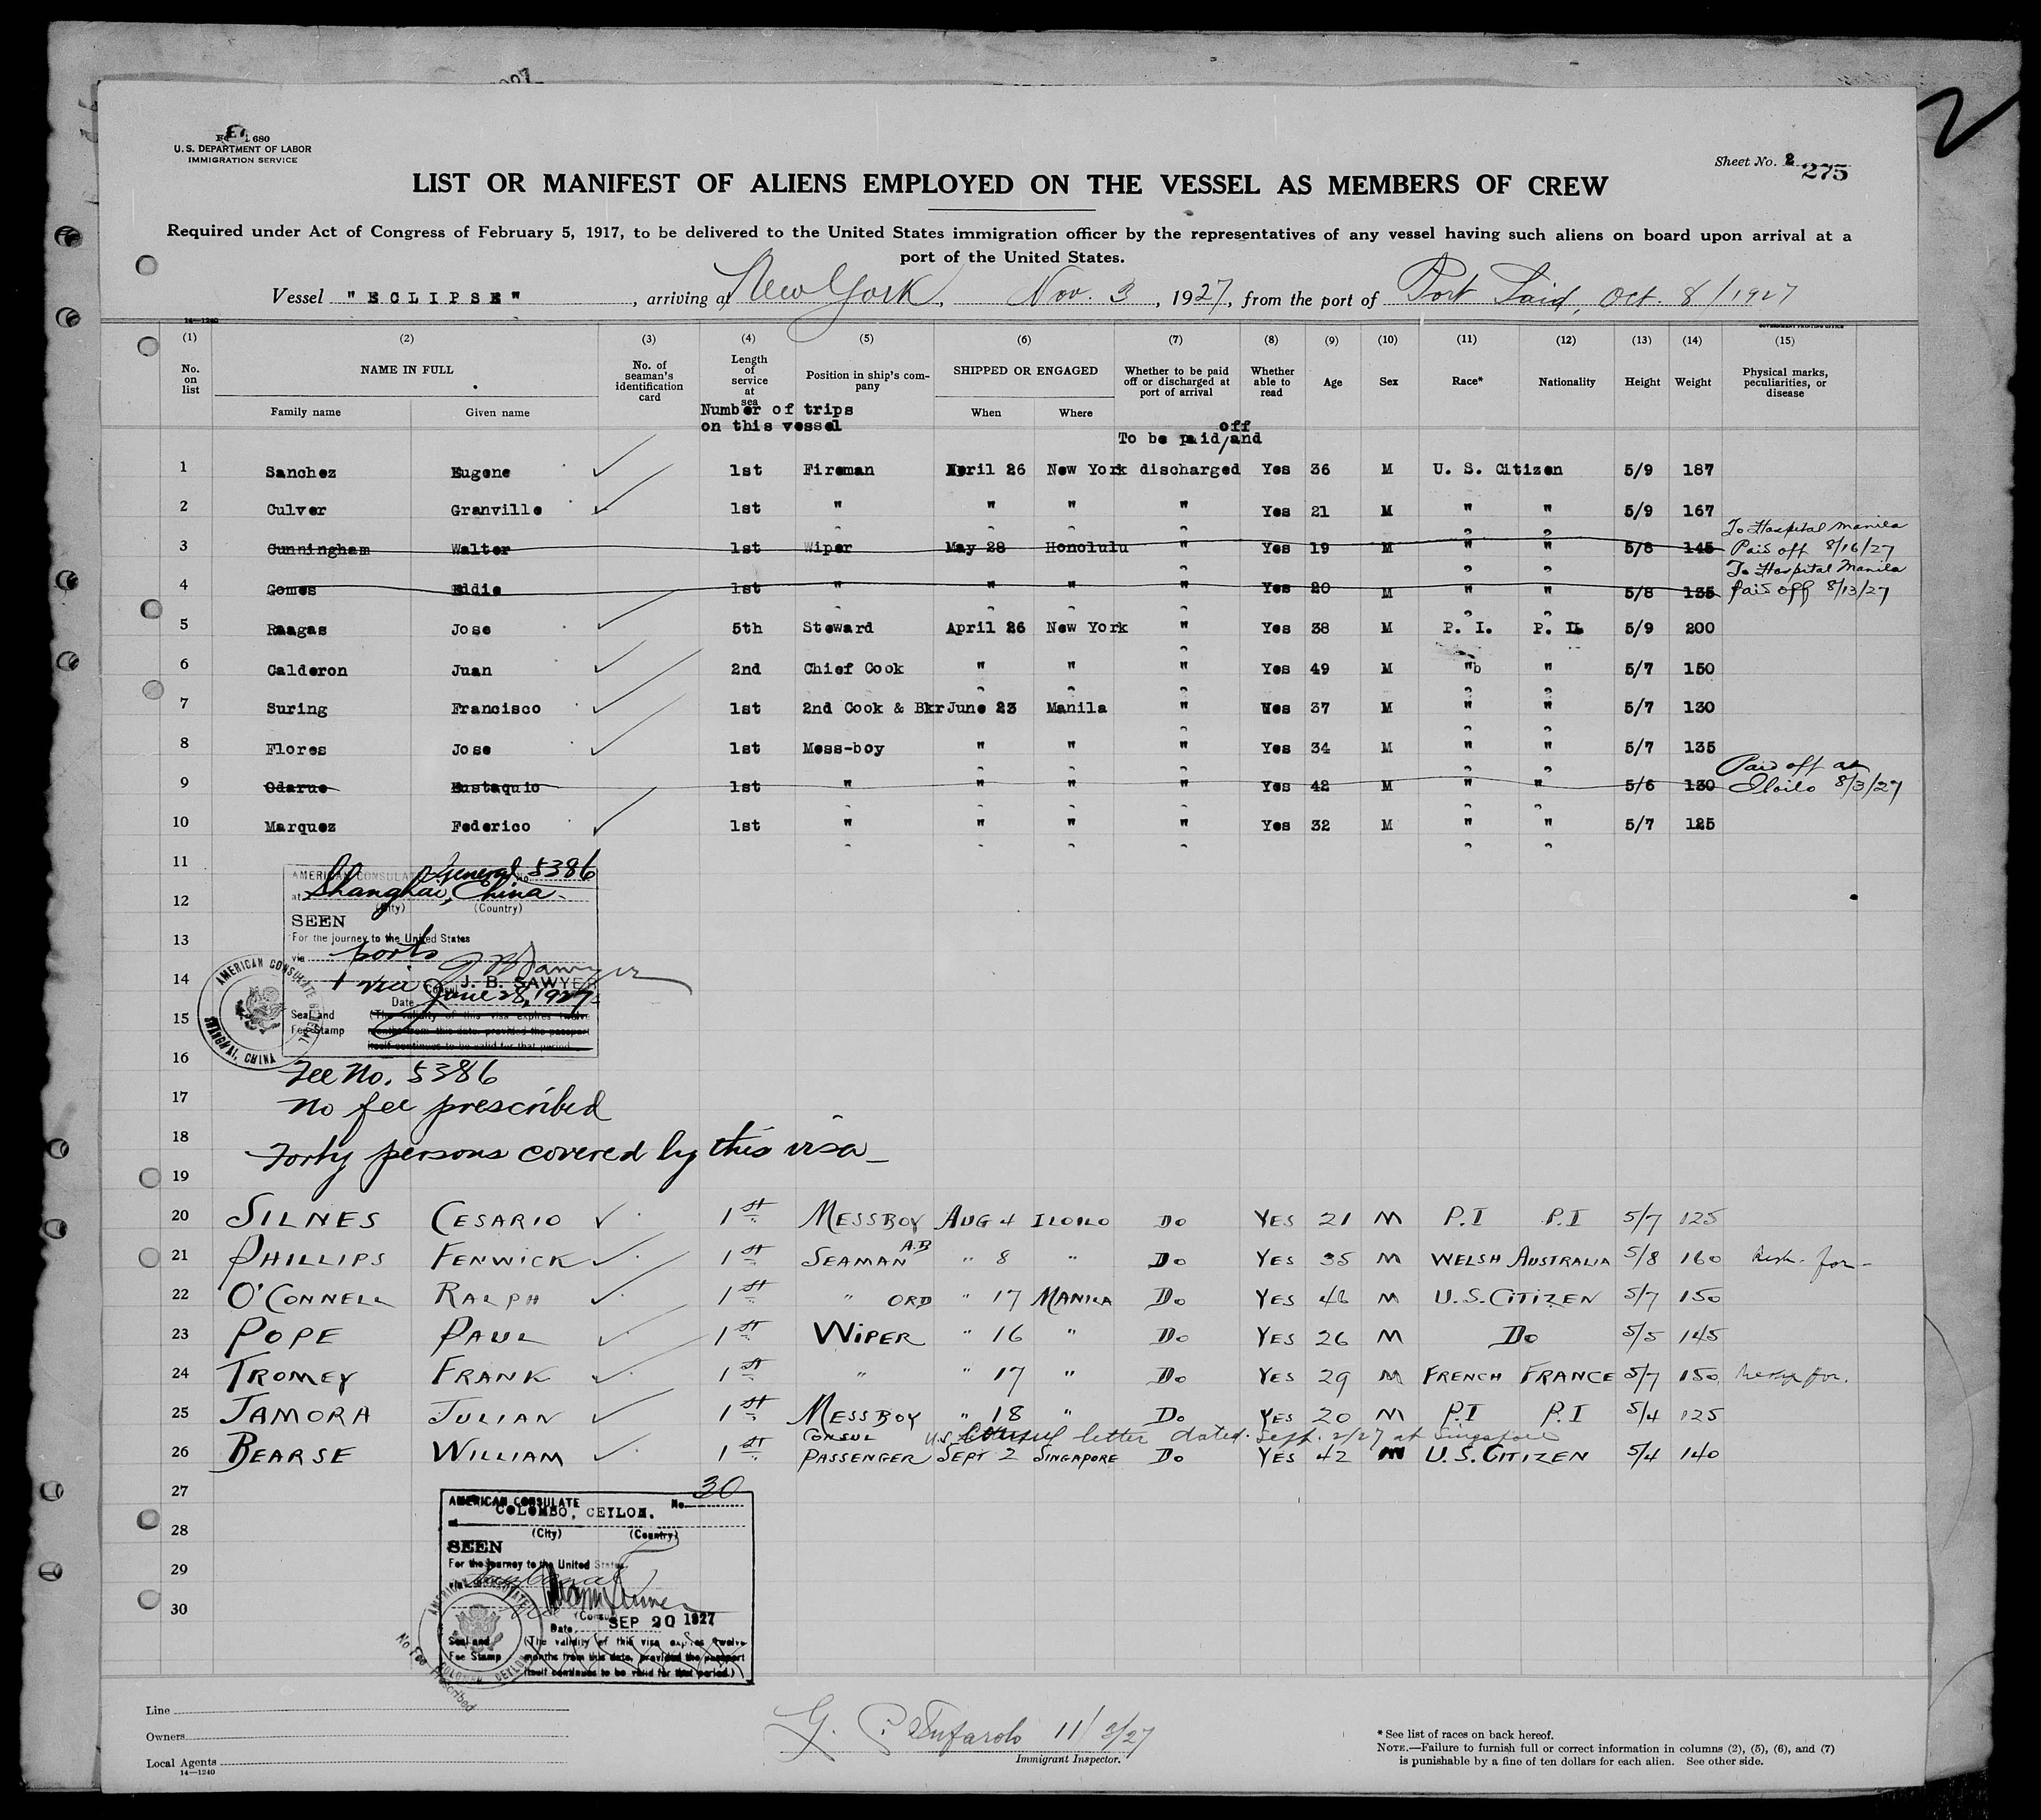 U.S. DEPARTMENT OF LABOR
IMMIGRATION SERVICE
Sheet No. 2
275
LIST OR MANIFEST OF ALIENS EMPLOYED ON THE VESSEL AS MEMBERS OF CREW
Required under Act of Congress of February 5, 1917, to be delivered to the United States immigration officer by the representatives of any vessel having such aliens on board upon arrival at a
port of the United States.
Vessel "ECLIPSE", arriving at New York, Nov. 3, 1927, from the port of Port Said, Oct. 8/1927
14—1240 GOVERNMENT PRINTING OFFICE
(1) (2) (3) (4) (5) (6) (7) (8) (9) (10) (11) (12) (13) (14) (15)
No. on list NAME IN FULL No. of seaman's identification card Length of service at sea Position in ship's company SHIPPED OR ENGAGED Whether to be paid off or discharged at port of arrival Whether able to read Age Sex Race* Nationality Height Weight Physical marks, peculiarities, or disease
Family name Given name When Where
Number of trips
on this vessel
To be paid/off and
1 Sanchez Eugene 1st Fireman April 26 New York discharged Yes 36 M U. S. Citizen 5/9 187
2 Culver Granville 1st " " " " Yes 21 M " " 5/9 167
To Hospital Manila
3 Cunningham Walter 1st Wiper May 28 Honolulu " Yes 19 M " " 5/8 145 Paid off 8/16/27
To Hospital Manila
4 Gomes Eddie 1st " " " " Yes 20 M " " 5/8 135 Paid off 8/13/27
5 Raagas Jose 5th Steward April 26 New York " Yes 38 M P. I. P. I. 5/9 200
6 Calderon Juan 2nd Chief Cook " " " Yes 49 M " " 5/7 150
7 Suring Francisco 1st 2nd Cook & Bkr June 23 Manila " Yes 37 M " " 5/7 130
8 Flores Jose 1st Mess-boy " " " Yes 34 M " " 5/7 135
Paid off at
9 Odarue Eustaquio 1st " " " " Yes 42 M " " 5/6 130 Iloilo 8/3/27
10 Marquez Federico 1st " " " " Yes 32 M " " 5/7 125
11
AMERICAN CONSULATE General No. 5386
at Shanghai, China
12
(City) (Country)
SEEN
13
For the journey to the United States
via ports
14
+ via
J. B. SAWYER
Consul
Date June 28, 1927
15
Seal and
Fee Stamp
(The validity of this visa expires twelve
months from this date, provided the passport
itself continues to be valid for that period
AMERICAN CONSULATE GENERAL
SHANGHAI, CHINA
16
Fee No. 5386
17
No fee prescribed
18
Forty persons covered by this visa
19
20 SILNES CESARIO 1st MESSBOY AUG 4 ILOILO DO YES 21 M P.I P.I 5/7 125
21 PHILLIPS FENWICK 1st SEAMAN A.B " 8 " DO YES 35 M WELSH AUSTRALIA 5/8 160
22 O'CONNELL RALPH 1st " ORD " 17 MANILA DO YES 46 M U.S. CITIZEN 5/7 150
23 POPE PAUL 1st WIPER " 16 " DO YES 26 M DO 5/5 145
24 TROMEY FRANK 1st " " 17 " DO YES 29 M FRENCH FRANCE 5/7 150
25 JAMORA JULIAN 1st MESSBOY " 18 " DO YES 20 M P.I P.I 5/4 125
CONSUL U.S. Consul letter dated Sept. 2/27 at Singapore
26 BEARSE WILLIAM 1st PASSENGER SEPT 2 SINGAPORE DO YES 42 M U.S. CITIZEN 5/4 140
27
AMERICAN CONSULATE No. 30
at COLOMBO, CEYLON.
28
(City) (Country)
SEEN
For the journey to the United States
29
via
30
(Consul
Date SEP 20 1927
Seal and
Fee Stamp
(The validity of this visa expires twelve
months from this date, provided the passport
itself continues to be valid for that period.)
AMERICAN CONSULATE
COLOMBO, CEYLON
No Fee Prescribed
Line
Owners
Local Agents
14—1240
11/3/27
Immigrant Inspector.
* See list of races on back hereof.
NOTE.—Failure to furnish full or correct information in columns (2), (5), (6), and (7)
is punishable by a fine of ten dollars for each alien. See other side.